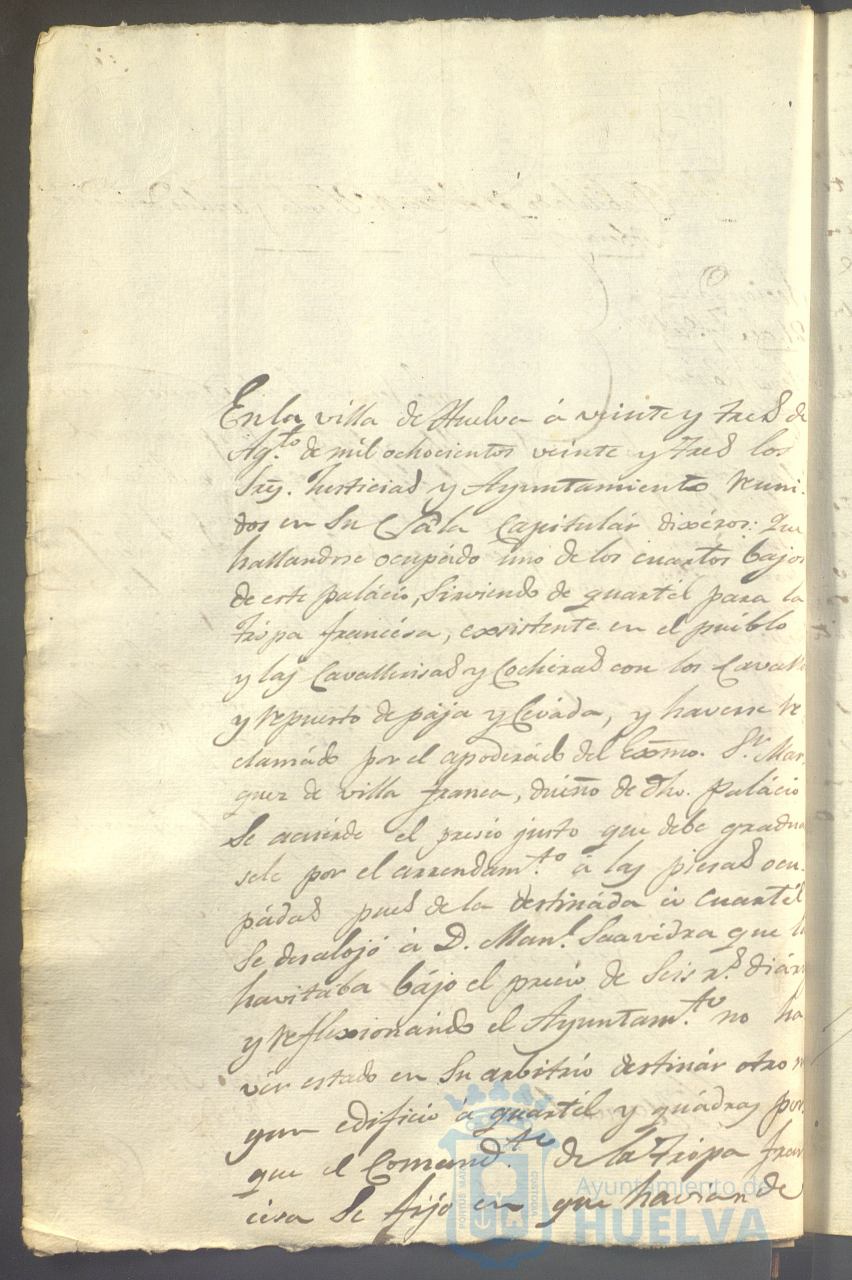 En la villa de Huelva à veinte y tres de
Ag.to de mil ochocientos veinte y tres los
Srs. Justicias y Ayuntamiento reuni-
dos en Su Sala Capitulár dixéron: Que
hallandose ocupádo uno de los cuartos bajos
de este palácio, Sirviendo de quartél para la
trópa francésa, exsistente en el puéblo
y las Cavallerisas y Cocheras con los Cavall
y repuesto de pája y Cevàda, y haverse re
clamádo por el apoderádo del Exmo. S.r Mar
quez de villa franca, duéño de dho. palácio
Se acuérde el presio justo que debe gradua
sele por el arrendam.to à las piesas ocu-
pádas pues de la destináda à cuartél
Se desalojó à D. Man.l Saavedra que l
havitaba bájo el precio de Seis r.s diár
y reflexsionàndo el Ayuntam.to no ha
vér estado en Su arbitrio destinár otro n
gun edificio à quartél y quádras por
que el Comand.te de la trópa fran
césa Se fijó en que havian de
Ayuntamiento de
HUELVA